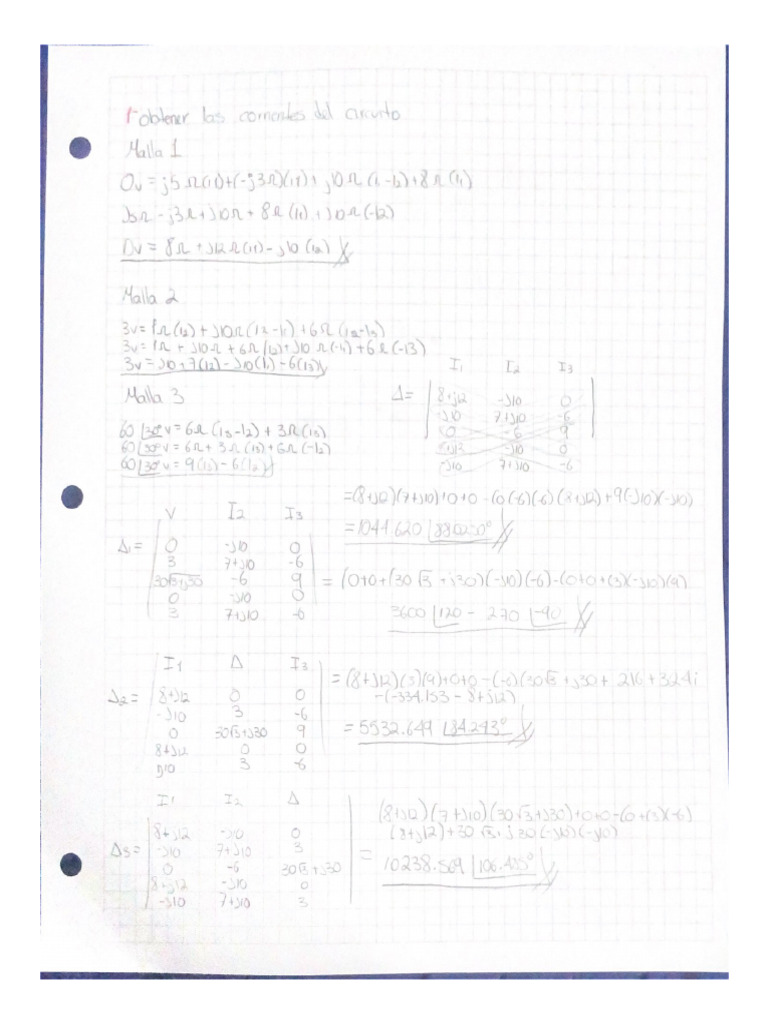 1- obtener las corrientes del circuito
Malla 1
0v = j5Ω(i1)+(-j3Ω)(i1)+j10Ω(i-i2)+8Ω(i1)
J5Ω - j3Ω + J10Ω + 8Ω(i1) + J10Ω(-i2)
0v = 8Ω + J12Ω(i1) - J10(i2)
Malla 2
3v = 1Ω(i2) + J10Ω(i2-i1) + 6Ω(i2-i3)
3v = 1Ω + J10Ω + 6Ω(i2) + J10Ω(-i1) + 6Ω(-i3)
3v = J10+7(i2) - J10(i1) - 6(i3)
Malla 3
60∠30° v = 6Ω(i3-i2) + 3Ω(i3)
60∠30° v = 6Ω + 3Ω(i3) + 6Ω(-i2)
60∠30° v = 9(i3) - 6(i2)
I1 I2 I3
Δ=
8+j12 -J10 0
-J10 7+J10 -6
0 -6 9
-J10 0
-J10 7+J10 -6
=(8+j12)(7+J10)+0+0-(0(-6)(-6)(8+j12)+9(-J10)(-J10)
=1044.620
V I2 I3
Δ1=
0 -J10 0
3 7+J10 -6
30√3+J30 -6 9
0 -J10 0
3 7+J10 -6
= (0+0+(30√3 + J30)(-J10)(-6)-(0+0+(3)(-J10)(9)
3600∠120 - 270∠-90
I1 Δ I3
Δ2=
8+J12 0 0
-J10 3 -6
0 30√3+J30 9
8+J12 0 0
J10 3 -6
= (8+J12)(3)(9)+0+0-(-6)(30√3+J30 + 216+324i
-(-334.153 - 8+J12)
= 5532.649∠84.243°
I1 I2 Δ
Δ3=
8+J12 -J10 0
-J10 7+J10 3
0 -6 30√3+J30
8+J12 -J10 0
-J10 7+J10 3
(8+J12)(7+J10)(30√3+J30)+0+0-(0+(3)(-6)
(8+J12)+30√3+J30(-J10)(-J10)
=
10238.569